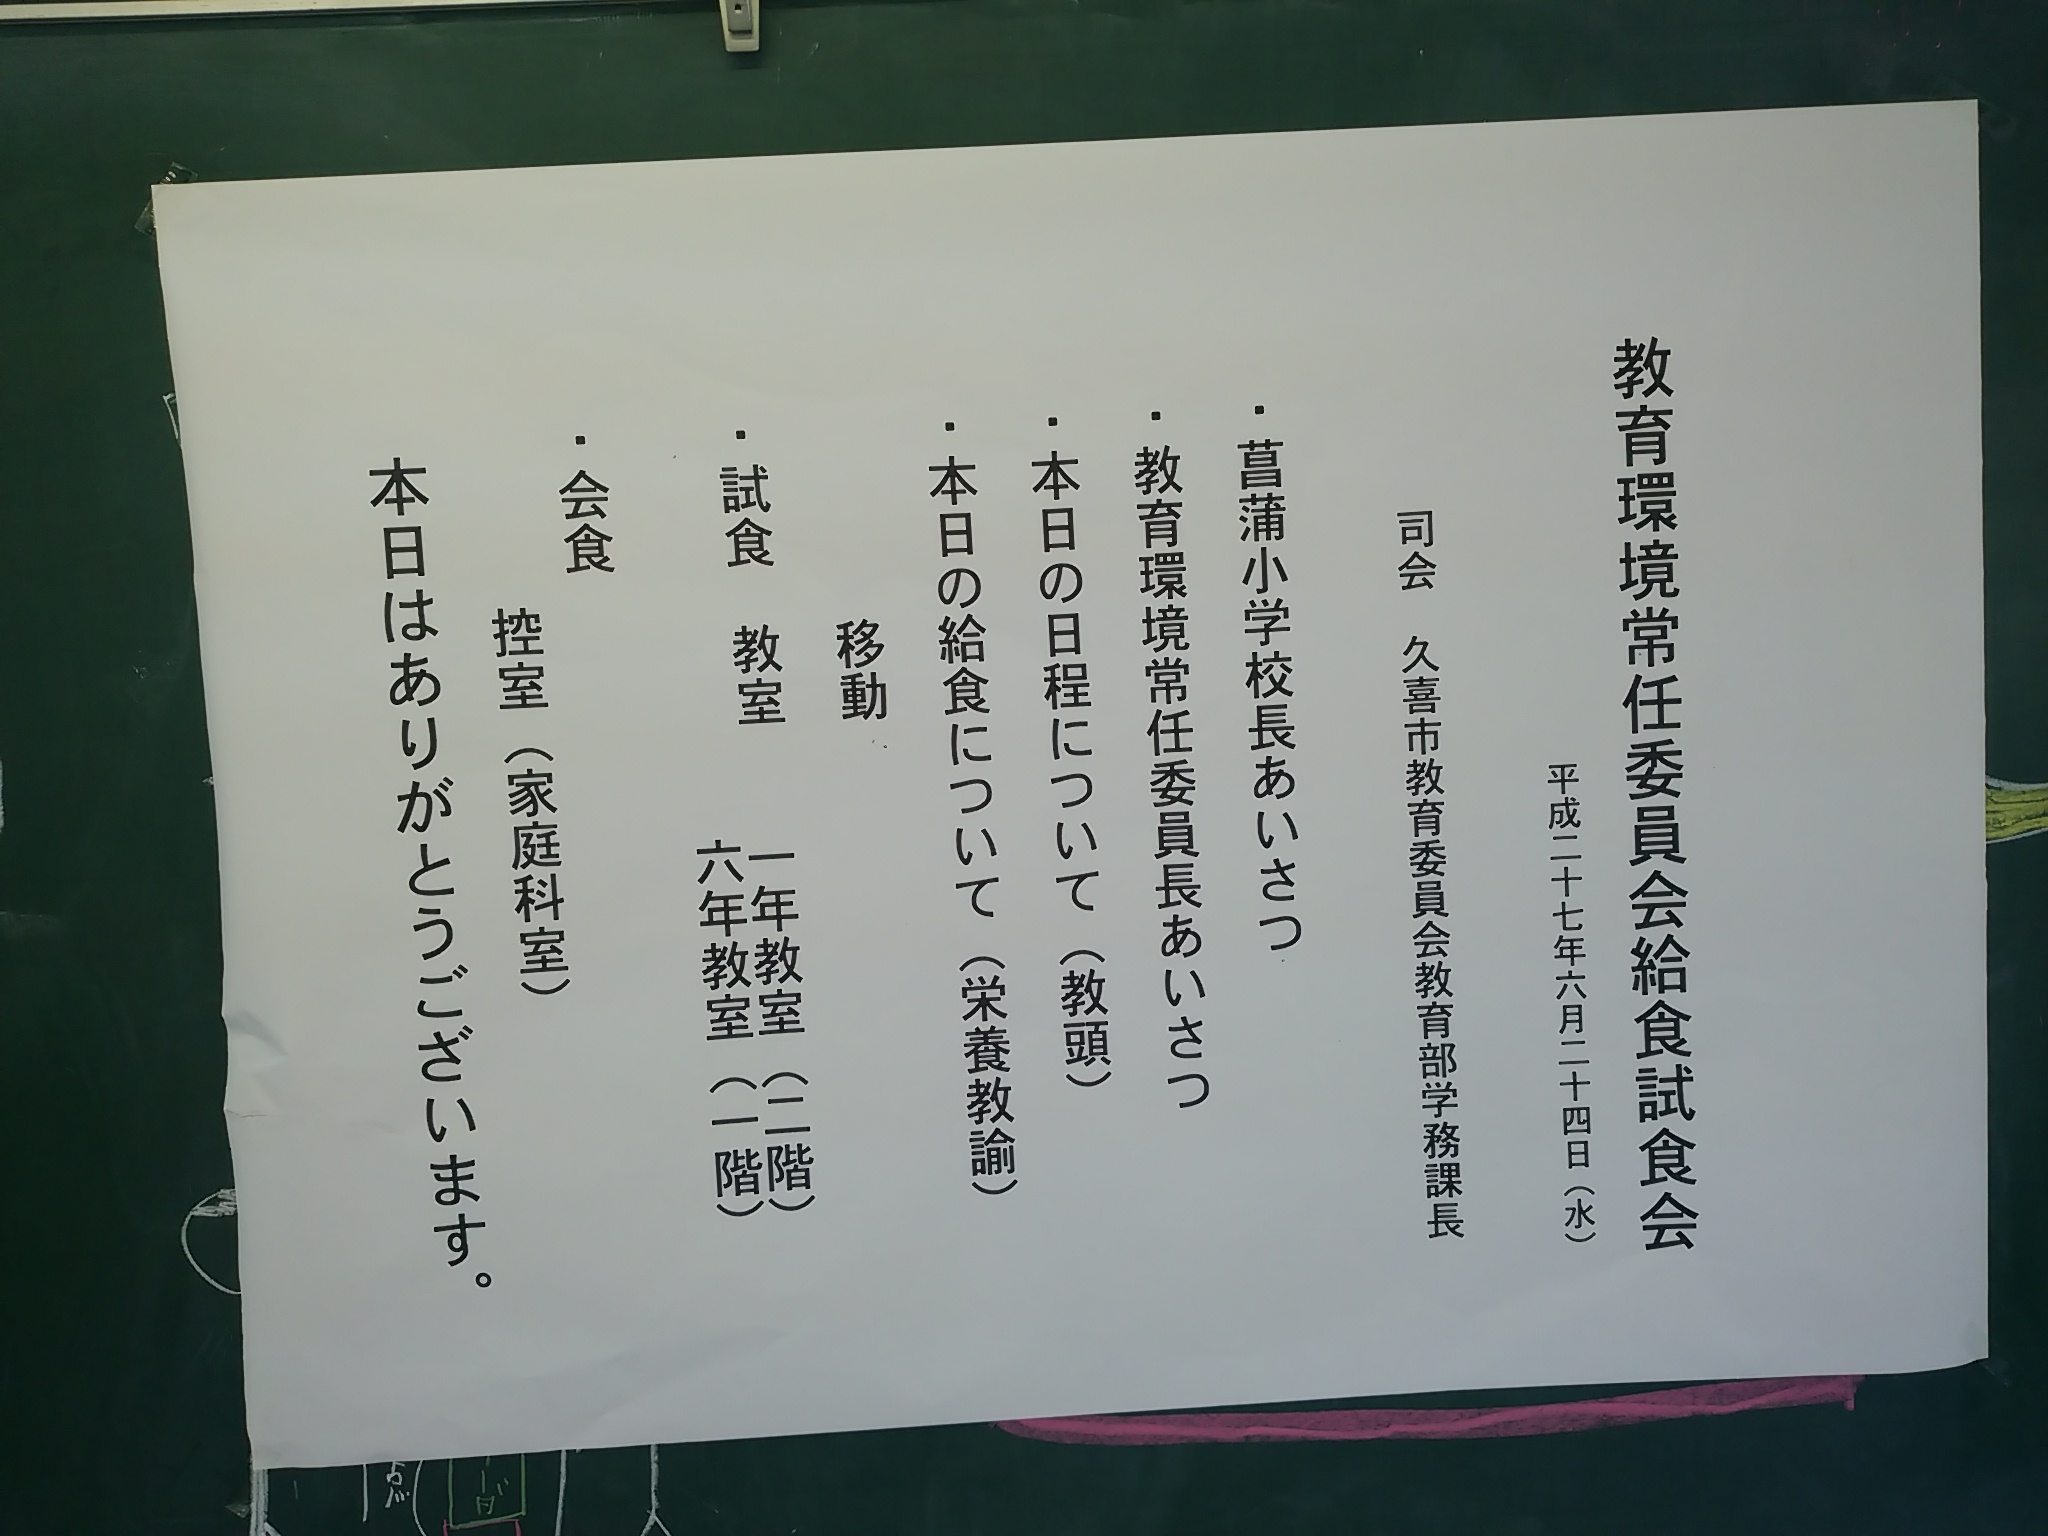 教育環境常任委員会給食試食会
平成二十七年六月二十四日（水）
司会　久喜市教育委員会教育部学務課長
・菖蒲小学校長あいさつ
・教育環境常任委員長あいさつ
・本日の日程について（教頭）
・本日の給食について（栄養教諭）
移動
・試食　教室　一年教室（二階）
六年教室（一階）
・会食
控室（家庭科室）
本日はありがとうございます。